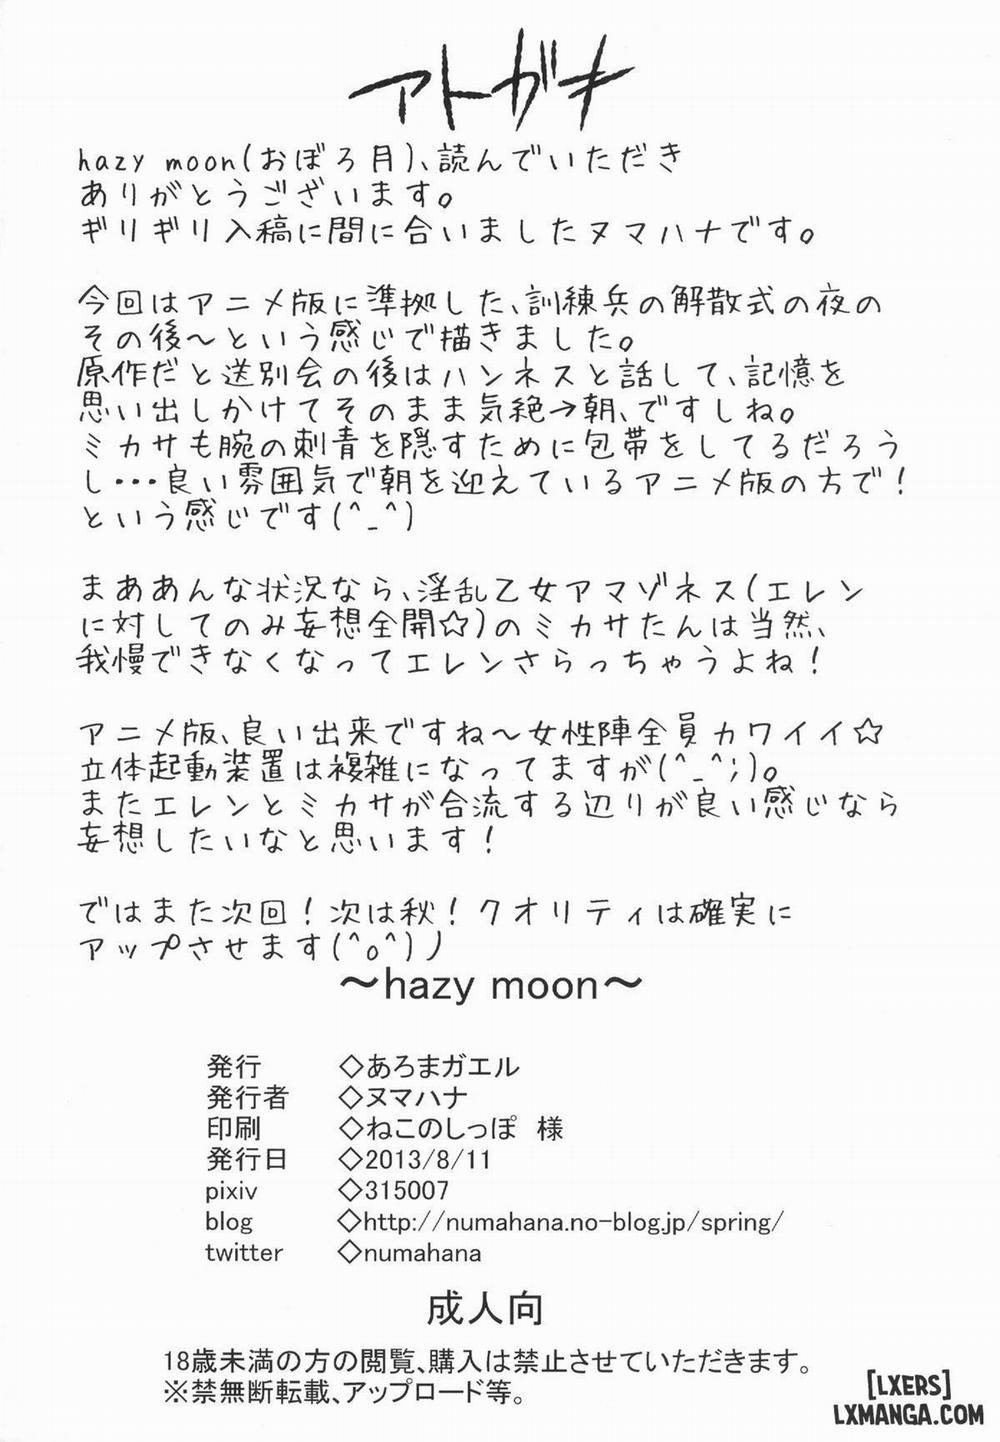 アトガキ
hazy moon(おぼろ月)、読んでいただき
ありがとうございます。
ギリギリ入稿に間に合いましたヌマハナです。
今回はアニメ版に準拠した、訓練兵の解散式の夜の
その後～という感じで描きました。
原作だと送別会の後はハンネスと話して、記憶を
思い出しかけてそのまま気絶→朝、ですしね。
ミカサも腕の刺青を隠すために包帯をしてるだろう
し･･･良い雰囲気で朝を迎えているアニメ版の方で!
という感じです(^_^)
まああんな状況なら、淫乱乙女アマゾネス(エレン
に対してのみ妄想全開☆)のミカサたんは当然、
我慢できなくなってエレンさらっちゃうよね!
アニメ版、良い出来ですね～女性陣全員カワイイ☆
立体起動装置は複雑になってますが(^_^;)。
またエレンとミカサが合流する辺りが良い感じなら
妄想したいなと思います!
ではまた次回!次は秋!クオリティは確実に
アップさせます(^o^)ノ
～hazy moon～
発行 ◇あろまガエル
発行者 ◇ヌマハナ
印刷 ◇ねこのしっぽ 様
発行日 ◇2013/8/11
pixiv ◇315007
blog ◇http://numahana.no-blog.jp/spring/
twitter ◇numahana
成人向
18歳未満の方の閲覧、購入は禁止させていただきます。
※禁無断転載、アップロード等。
[LXERS]
LXMANGA.COM